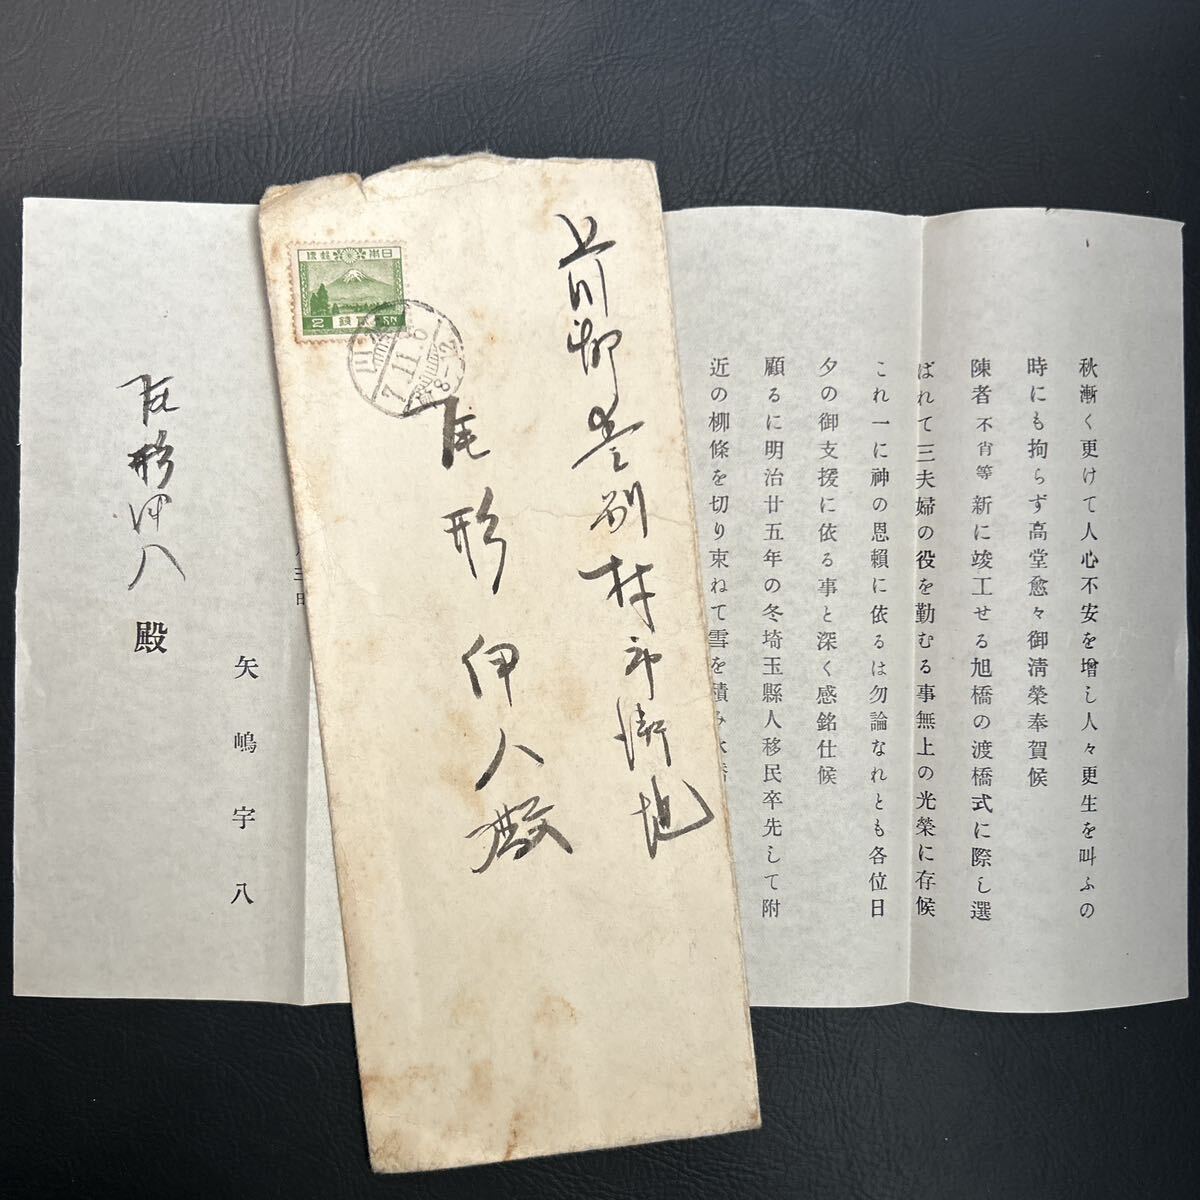 秋漸く更けて人心不安を增し人々更生を叫ふの
時にも拘らず高堂愈々御淸榮奉賀候
陳者不肖等新に竣工せる旭橋の渡橋式に際し選
ばれて三夫婦の役を勤むる事無上の光榮に存候
これ一に神の恩賴に依るは勿論なれとも各位日
夕の御支援に依る事と深く感銘仕候
顧るに明治廿五年の冬埼玉縣人移民卒先して附
近の柳條を切り束ねて雪を積み
上川郡当別村市街地
尾形伊八殿
日本郵便
2 貳錢 SN
7.11.6
8-2
三日
矢嶋宇八
尾形伊八殿